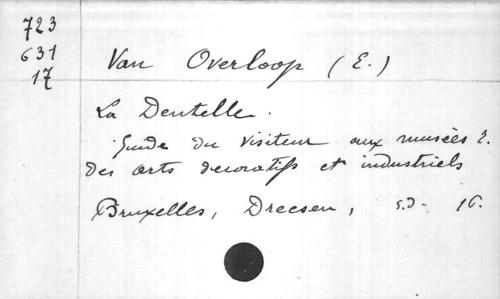 723
631
17
Van Overloop (E.)
La Dentelle.
Guide du visiteur aux musées R.
des arts decoratifs et industriels
Bruxelles, Dreesen, s.d. 16.